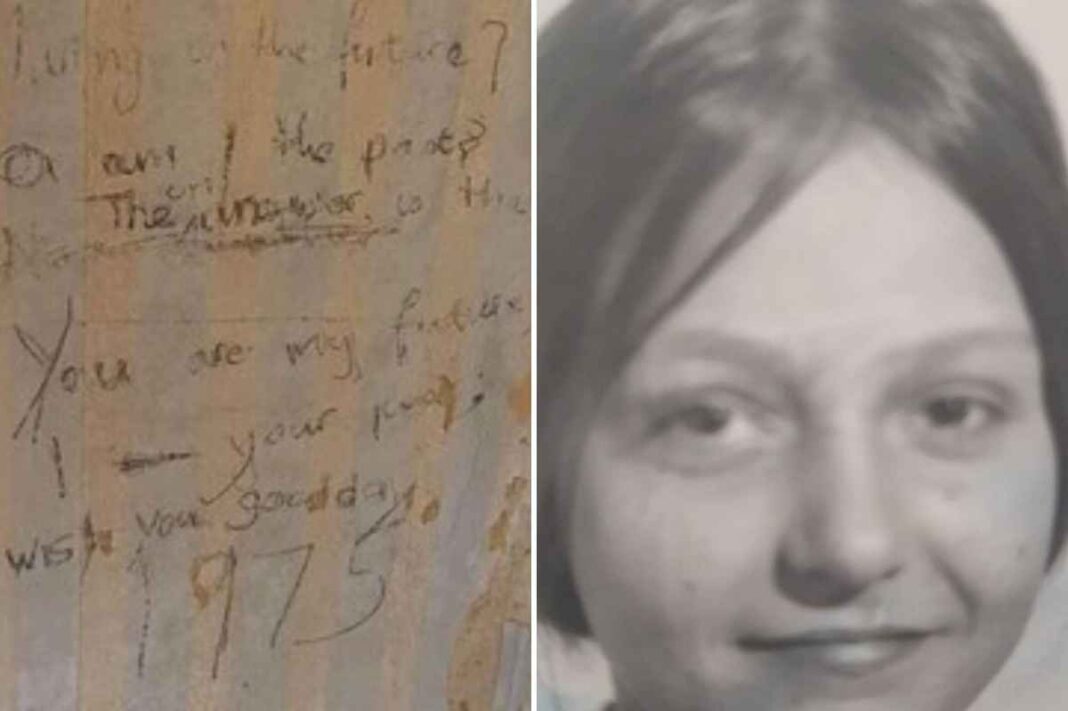 living in the future?
Or am I the past?
The answer is this
You are my future,
I — your past.
wish you good day.
1975